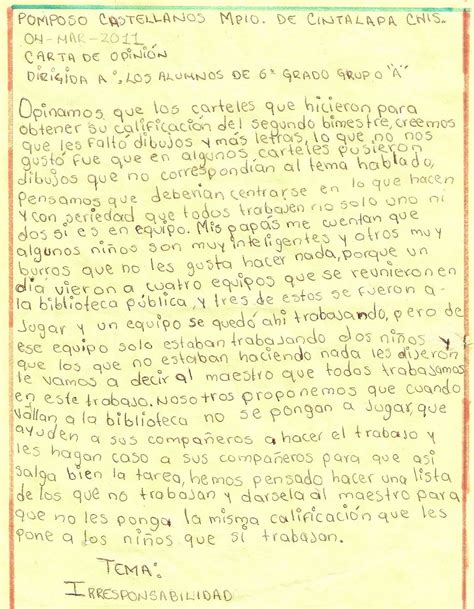 POMPOSO CASTELLANOS MPIO. DE CINTALAPA CHIS.
04-MAR-2011
CARTA DE OPINIÓN
DIRIGIDA A: LOS ALUMNOS DE 6º GRADO GRUPO "A"
Opinamos que los carteles que hicieron para
obtener su calificación del segundo bimestre, creemos
que les falto dibujos y más letras, lo que no nos
gustó fue que en algunos carteles pusieron
dibujos que no correspondían al tema hablado,
Pensamos que deberían centrarse en lo que hacen
y con seriedad que todos trabajen no solo uno ni
dos si es en equipo. Mis papás me cuentan que
algunos niños son muy inteligentes y otros muy
burros que no les gusta hacer nada, porque un
día vieron a cuatro equipos que se reunieron en
la biblioteca pública, y tres de estos se fueron a-
Jugar y un equipo se quedó ahi trabajando, pero de
ese equipo solo estaban trabajando dos niños y
que los que no estaban haciendo nada les dijeron
le vamos a decir al maestro que todos trabajamos
en este trabajo. Nosotros proponemos que cuando
vallan a la biblioteca no se pongan a Jugar, que
ayuden a sus compañeros a hacer el trabajo y
les hagan caso a sus compañeros para que asi
salga bien la tarea, hemos pensado hacer una lista
de los que no trabajan y darsela al maestro para
que no les ponga la misma calificación que les
pone a los niños que si trabajan.
TEMA:
IRRESPONSABILIDAD